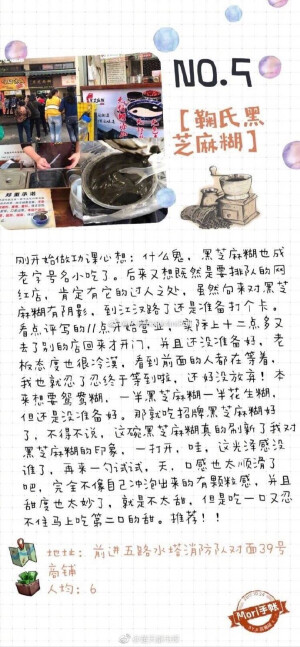 NO.5
【鞠氏黑
芝麻糊】
刚开始做功课心想：什么鬼，黑芝麻糊也成
老字号名小吃了。后来又想既然是要排队的网
红店，肯定有它的过人之处，虽然向来对黑芝
麻糊有阴影，到江汉路了还是准备打个卡。
看点评写的11点开始营业，实际上十二点多又
去了别的店回来才开门，并且还没准备好，老
板态度也很冷漠，看到前面的人都在等着，
我也就忍了忍终于等到啦，还好没放弃！本
来想要鸳鸯糊，一半黑芝麻糊一半花生糊，
但还是没准备好，那就吃招牌黑芝麻糊好
了，不得不说，这碗黑芝麻糊真的刷新了我对
黑芝麻糊的印象，一打开，哇，这光泽感没
谁了，再来一勺试试，天，口感也太顺滑了
吧，完全不像自己冲泡出来的有颗粒感，并且
甜度也太妙了，就是不太甜，但是吃一口又忍
不住马上吃第二口的甜。推荐！！
地址：前进五路水塔消防队对面39号
商铺
人均：6
Mori手帐